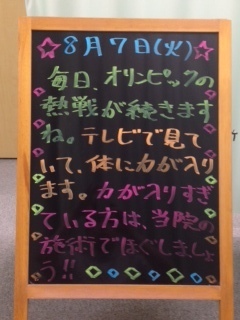 ☆8月7日(火)☆
毎日、オリンピックの
熱戦が続きます
ね。テレビで見て
いて、体に力が入り
ます。力が入りすぎ
ている方は、当院の
施術でほぐしましょ
う!!